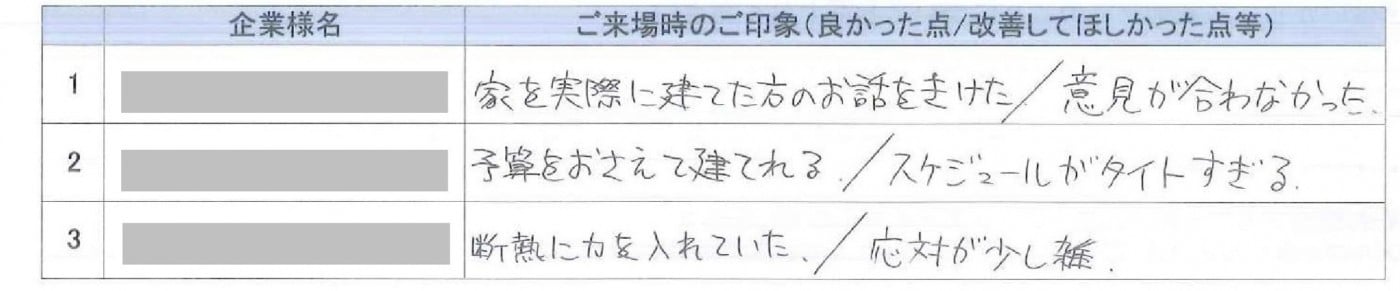 企業様名 ご来場時のご印象(良かった点/改善してほしかった点等)
1 家を実際に建てた方のお話をきけた/意見が合わなかった.
2 予算をおさえて建てれる./スケジュールがタイトすぎる.
3 断熱に力を入れていた./応対が少し雑.